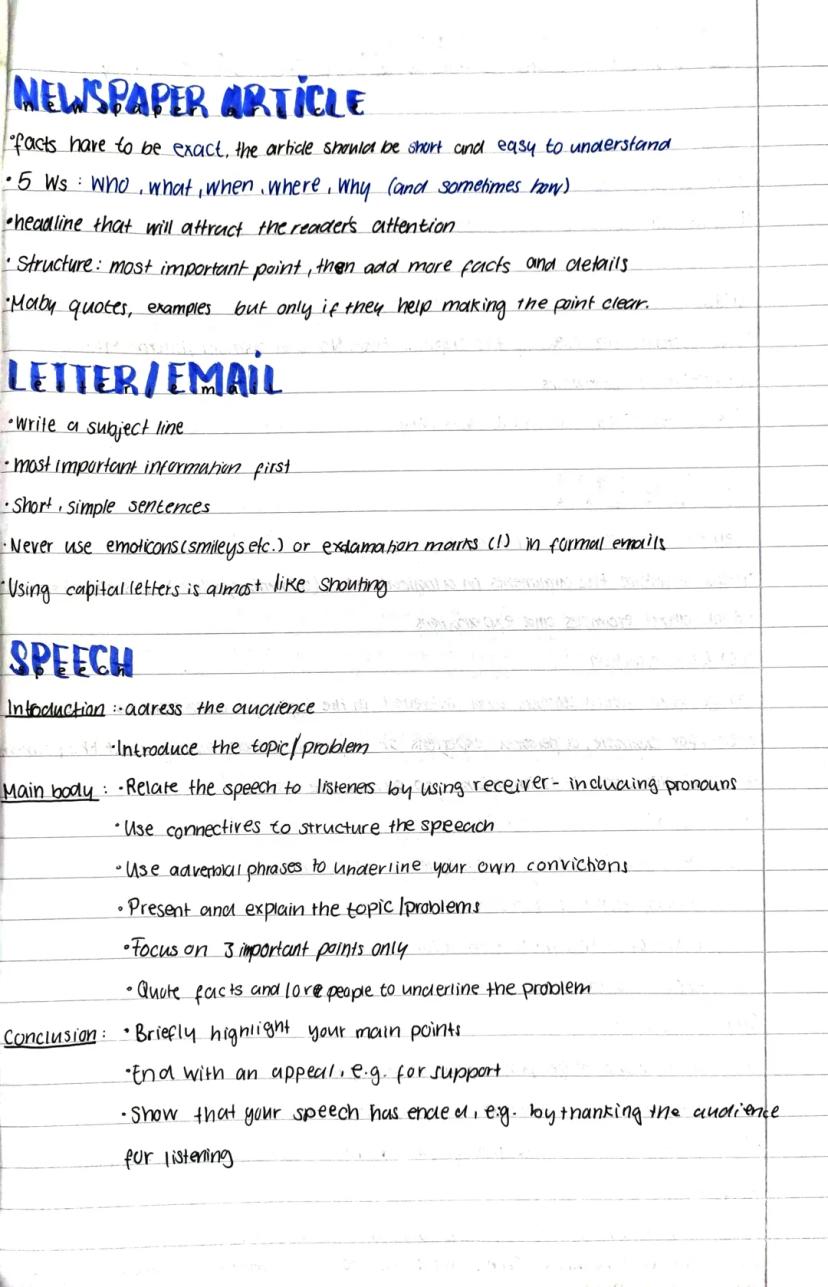 NEWSPAPER ARTICLE
•facts have to be exact, the article should be short and easy to understand
•5 Ws : Who, what, when, where, why (and sometimes how)
•headline that will attract the reader's attention
•Structure: most important point, then add more facts and details
•Maby quotes, examples but only if they help making the point clear.
LETTER/EMAIL
•Write a subject line
•most important information first
•Short, simple sentences
•Never use emoticons (smileys etc.) or exclamation marks (!) in formal emails
•Using capital letters is almost like shouting
SPEECH
Intoduction :•adress the audience
•Introduce the topic/problem
Main body : •Relate the speech to listeners by using receiver-including pronouns
•Use connectives to structure the speeach
•Use adverbial phrases to underline your own convictions
•Present and explain the topic/problems
•Focus on 3 important points only
•Quote facts and/or people to underline the problem
Conclusion: •Briefly highlight your main points
•End with an appeal, e.g. for support
•Show that your speech has ended, e.g. by thanking the audience
for listening